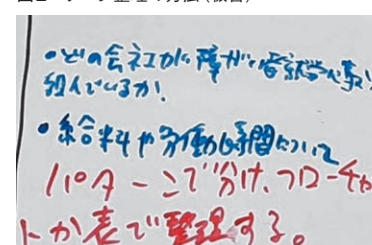 ・どの会社が障がい者就労に取り
組んでいるか。
・給料や労働時間について
パターンで分け、フローチャ
ートか表で整理する。